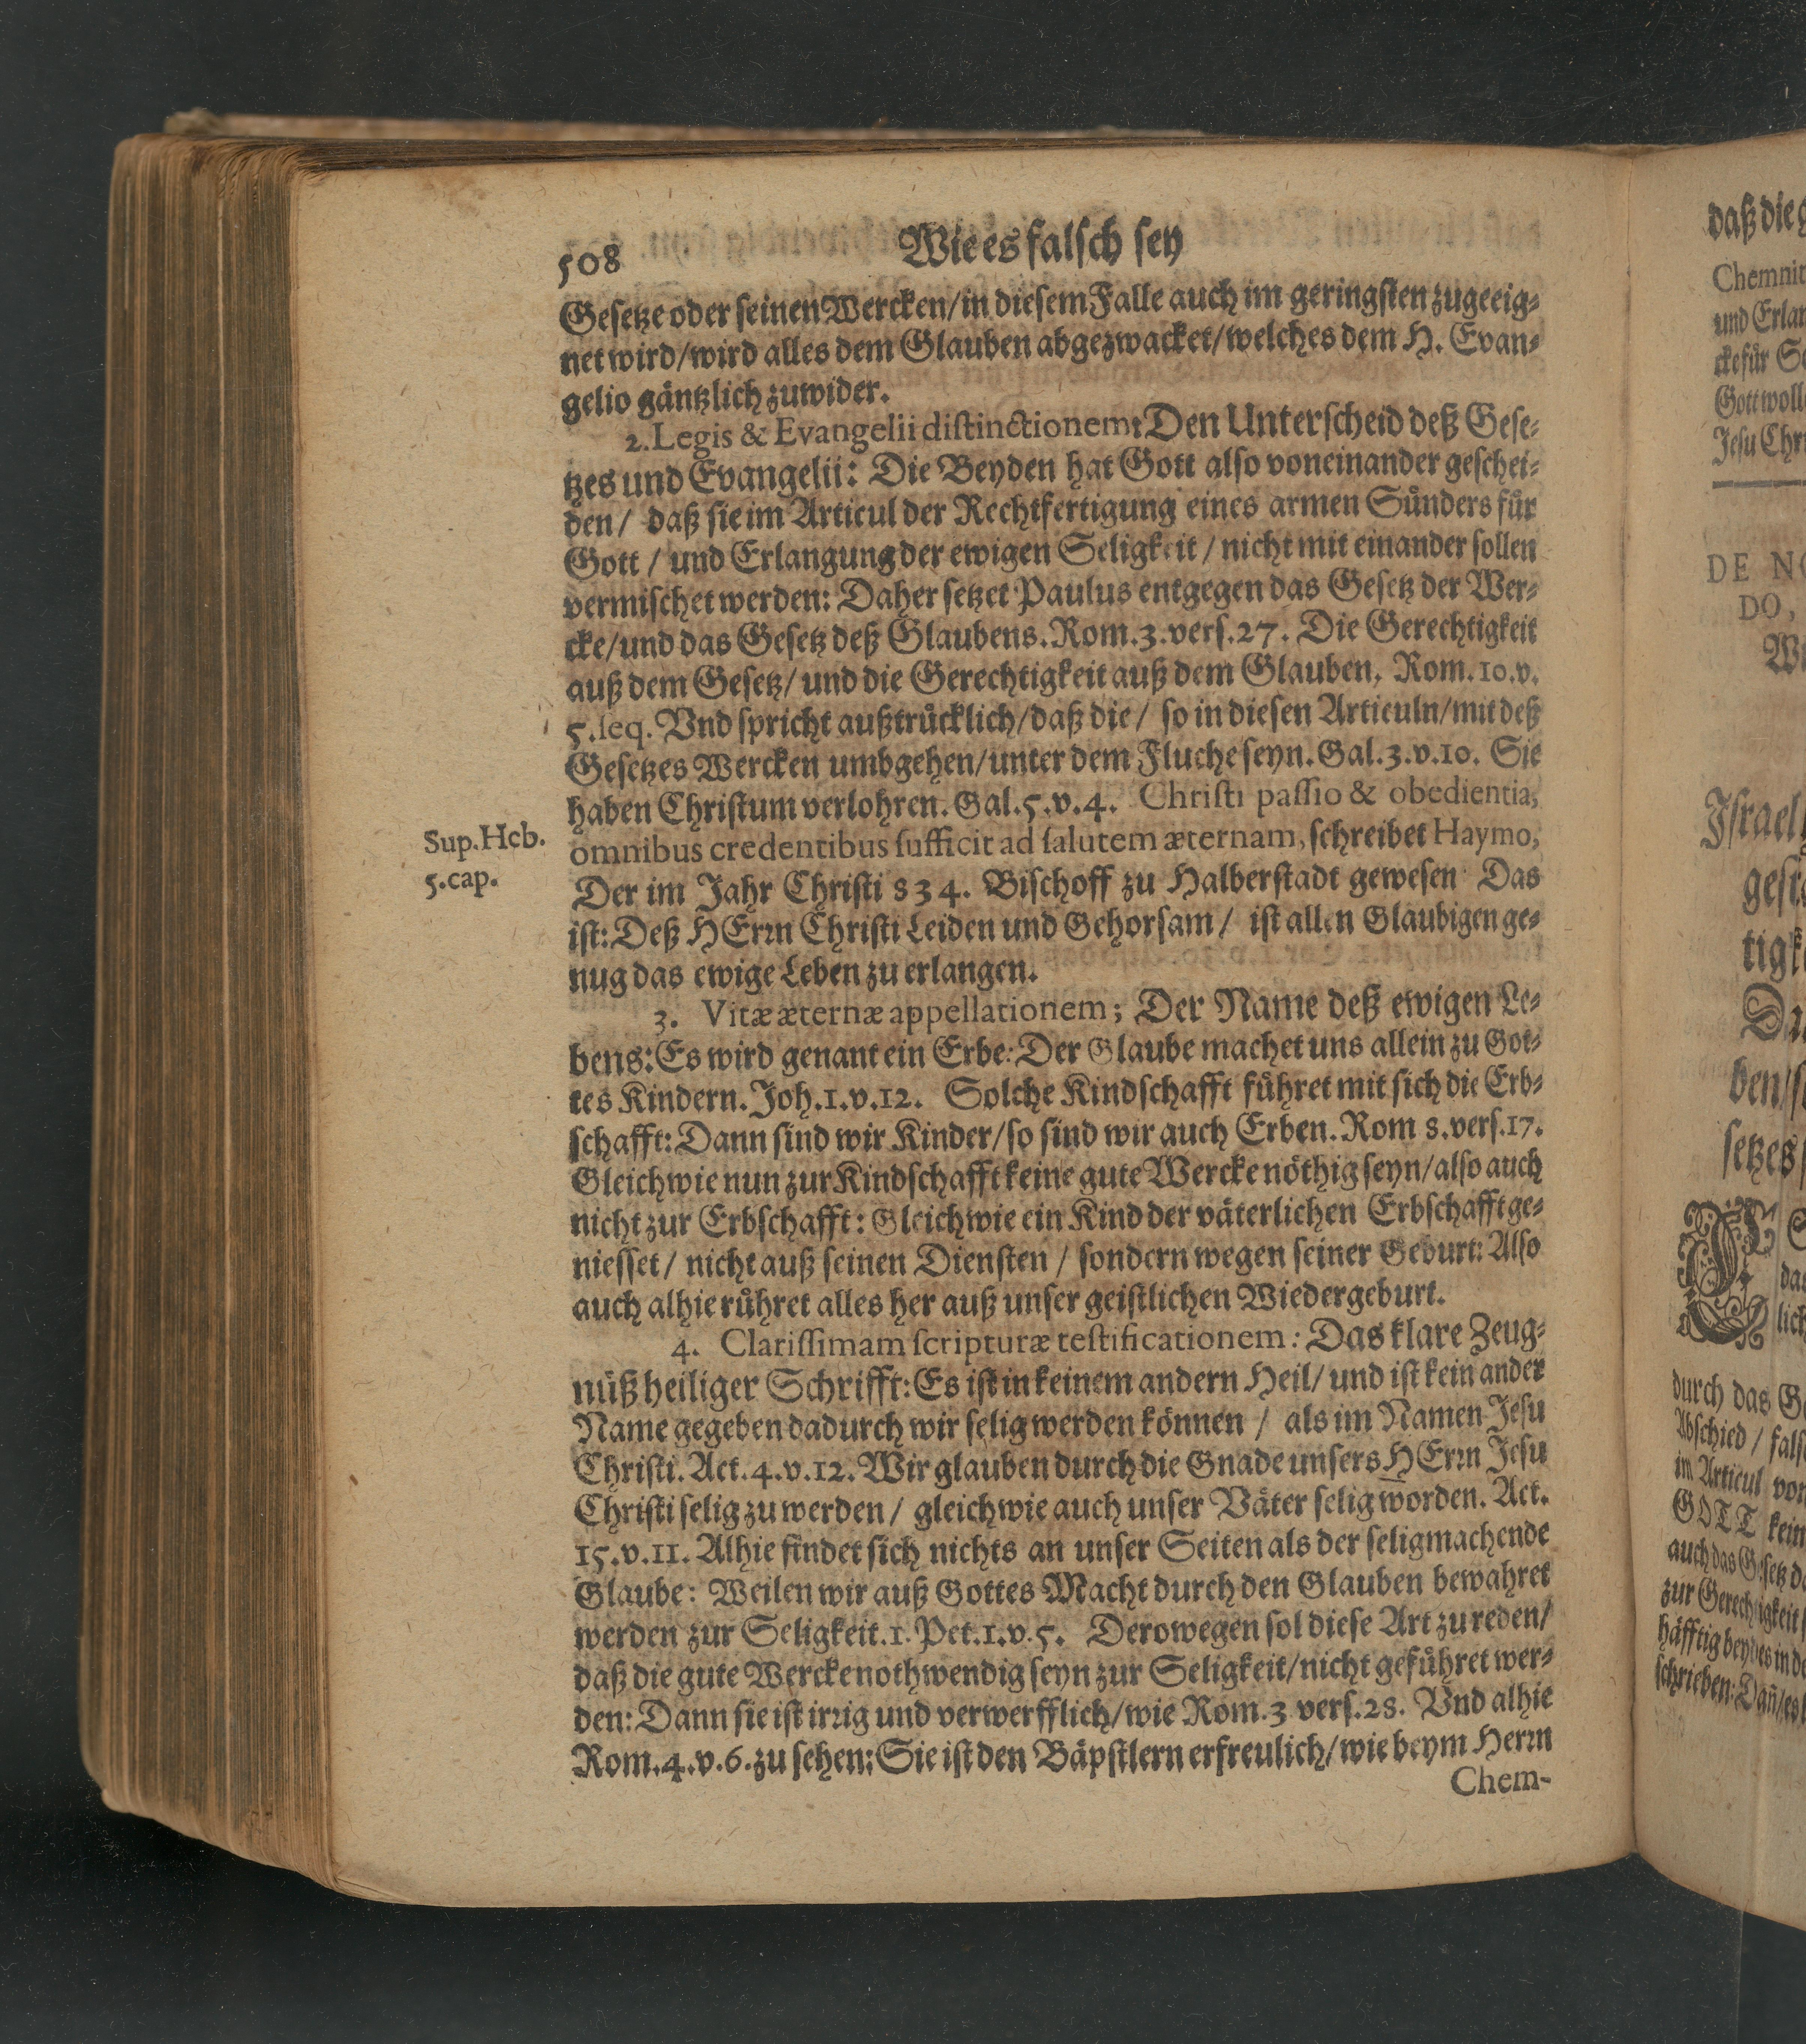 508 Wie es falsch sey
Gesetze oder seinen Wercken/ in diesem Falle auch im geringsten zugeeig-
net wird/ wird alles dem Glauben abgezwacket/ welches dem H. Evan-
gelio gäntzlich zuwider.
2. Legis & Evangelii distinctionem: Den Unterscheid deß Gese-
tzes und Evangelii: Die Beyden hat Gott also voneinander geschei-
den/ daß sie im Articul der Rechtfertigung eines armen Sünders für
Gott / und Erlangung der ewigen Seligkeit / nicht mit einander sollen
vermischet werden: Daher setzet Paulus entgegen das Gesetz der Wer-
cke/ und das Gesetz deß Glaubens. Rom. 3. vers. 27. Die Gerechtigkeit
auß dem Gesetz/ und die Gerechtigkeit auß dem Glauben, Rom. 10. v.
5. seq. Vnd spricht außtrücklich/ daß die/ so in diesen Articuln/ mit deß
Gesetzes Wercken umbgehen/ unter dem Fluche seyn. Gal. 3. v. 10. Sie
haben Christum verlohren. Gal. 5. v. 4. Christi passio & obedientia,
omnibus credentibus sufficit ad salutem æternam, schreibet Haymo,
Sup. Heb.
5. cap.
Der im Jahr Christi 834. Bischoff zu Halberstadt gewesen Das
ist: Deß HErrn Christi Leiden und Gehorsam/ ist allen Glaubigen ge-
nug das ewige Leben zu erlangen.
3. Vitæ æternæ appellationem; Der Name deß ewigen Le-
bens: Es wird genant ein Erbe: Der Glaube machet uns allein zu Got-
tes Kindern. Joh. 1. v. 12. Solche Kindschafft führet mit sich die Erb-
schafft: Dann sind wir Kinder/ so sind wir auch Erben. Rom 8. vers. 17.
Gleich wie nun zur Kindschafft keine gute Wercke nöthig seyn/ also auch
nicht zur Erbschafft: Gleich wie ein Kind der väterlichen Erbschafft ge-
niesset/ nicht auß seinen Diensten / sondern wegen seiner Geburt: Also
auch alhie rühret alles her auß unser geistlichen Wiedergeburt.
4. Clarissimam scripturæ testificationem: Das klare Zeug-
nüß heiliger Schrifft: Es ist in keinem andern Heil/ und ist kein ander
Name gegeben dadurch wir selig werden können / als im Namen Jesu
Christi. Act. 4. v. 12. Wir glauben durch die Gnade unsers HErrn Jesu
Christi selig zu werden/ gleich wie auch unser Väter selig worden. Act.
15. v. 11. Alhie findet sich nichts an unser Seiten als der seligmachende
Glaube: Weilen wir auß Gottes Macht durch den Glauben bewahret
werden zur Seligkeit. 1. Pet. 1. v. 5. Derowegen sol diese Art zu reden/
daß die gute Wercke nothwendig seyn zur Seligkeit/ nicht geführet wer-
den: Dann sie ist irrig und verwerfflich/ wie Rom. 3 vers. 28. Vnd alhie
Rom. 4. v. 6. zu sehen: Sie ist den Bäpstlern erfreulich/ wie beym Herrn
Chem-
daß die
Chemnit
und Erlan
cke für
Gott woll
Jesu Chr
DE NO
DO,
Israel
tigk
ben/
setzes
lich
durch das
Abschied / fals
im Articul von
GOTT kein
auch das Gesetz
zur Gerechtigkeit
häfftig beydes in
schrieben: Dañ/ es